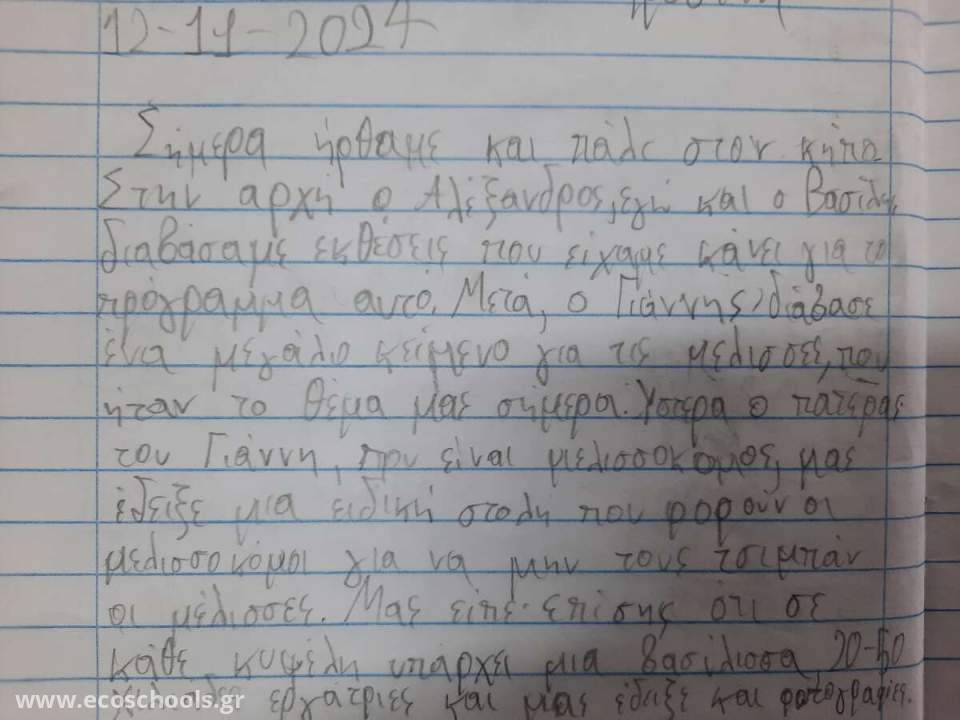 12-11-2024
Σήμερα ήρθαμε και πάλι στον κήπο
Στην αρχή ο Αλέξανδρος, εγώ και ο Βασίλης
διαβάσαμε εκθέσεις που είχαμε κάνει για το
πρόγραμμα αυτό. Μετά, ο Γιάννης διάβασε
ένα μεγάλο κείμενο για τις μέλισσες, που
ήταν το θέμα μας σήμερα. Ύστερα ο πατέρας
του Γιάννη, που είναι μελισσοκόμος, μας
έδειξε μια ειδική στολή που φορούν οι
μελισσοκόμοι για να μην τους τσιμπάν
οι μέλισσες. Μας είπε επίσης ότι σε
κάθε κυψέλη υπάρχει μια βασίλισσα 20-50
εργάτριες και μας έδειξε και φωτογραφίες.
www.ecoschools.gr